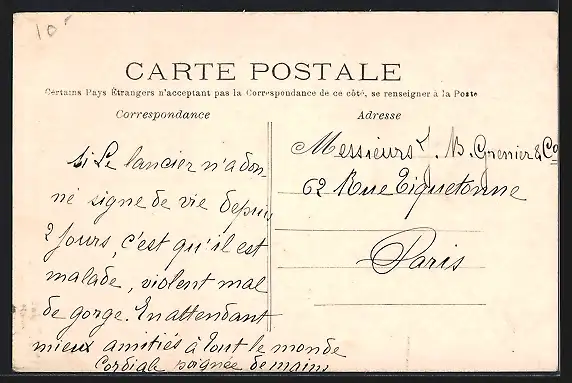 10
CARTE POSTALE
Certains Pays Étrangers n'acceptant pas la Correspondance de ce côté, se renseigner à la Poste
Correspondance
Adresse
Si Le lancier n'a don-
né signe de vie depuis
2 jours, c'est qu'il est
malade, violent mal
de gorge. En attendant
mieux amitiés à tout le monde
Cordiale poignée de mains
Messieurs B. Grenier & Co
62 Rue Tiquetonne
Paris